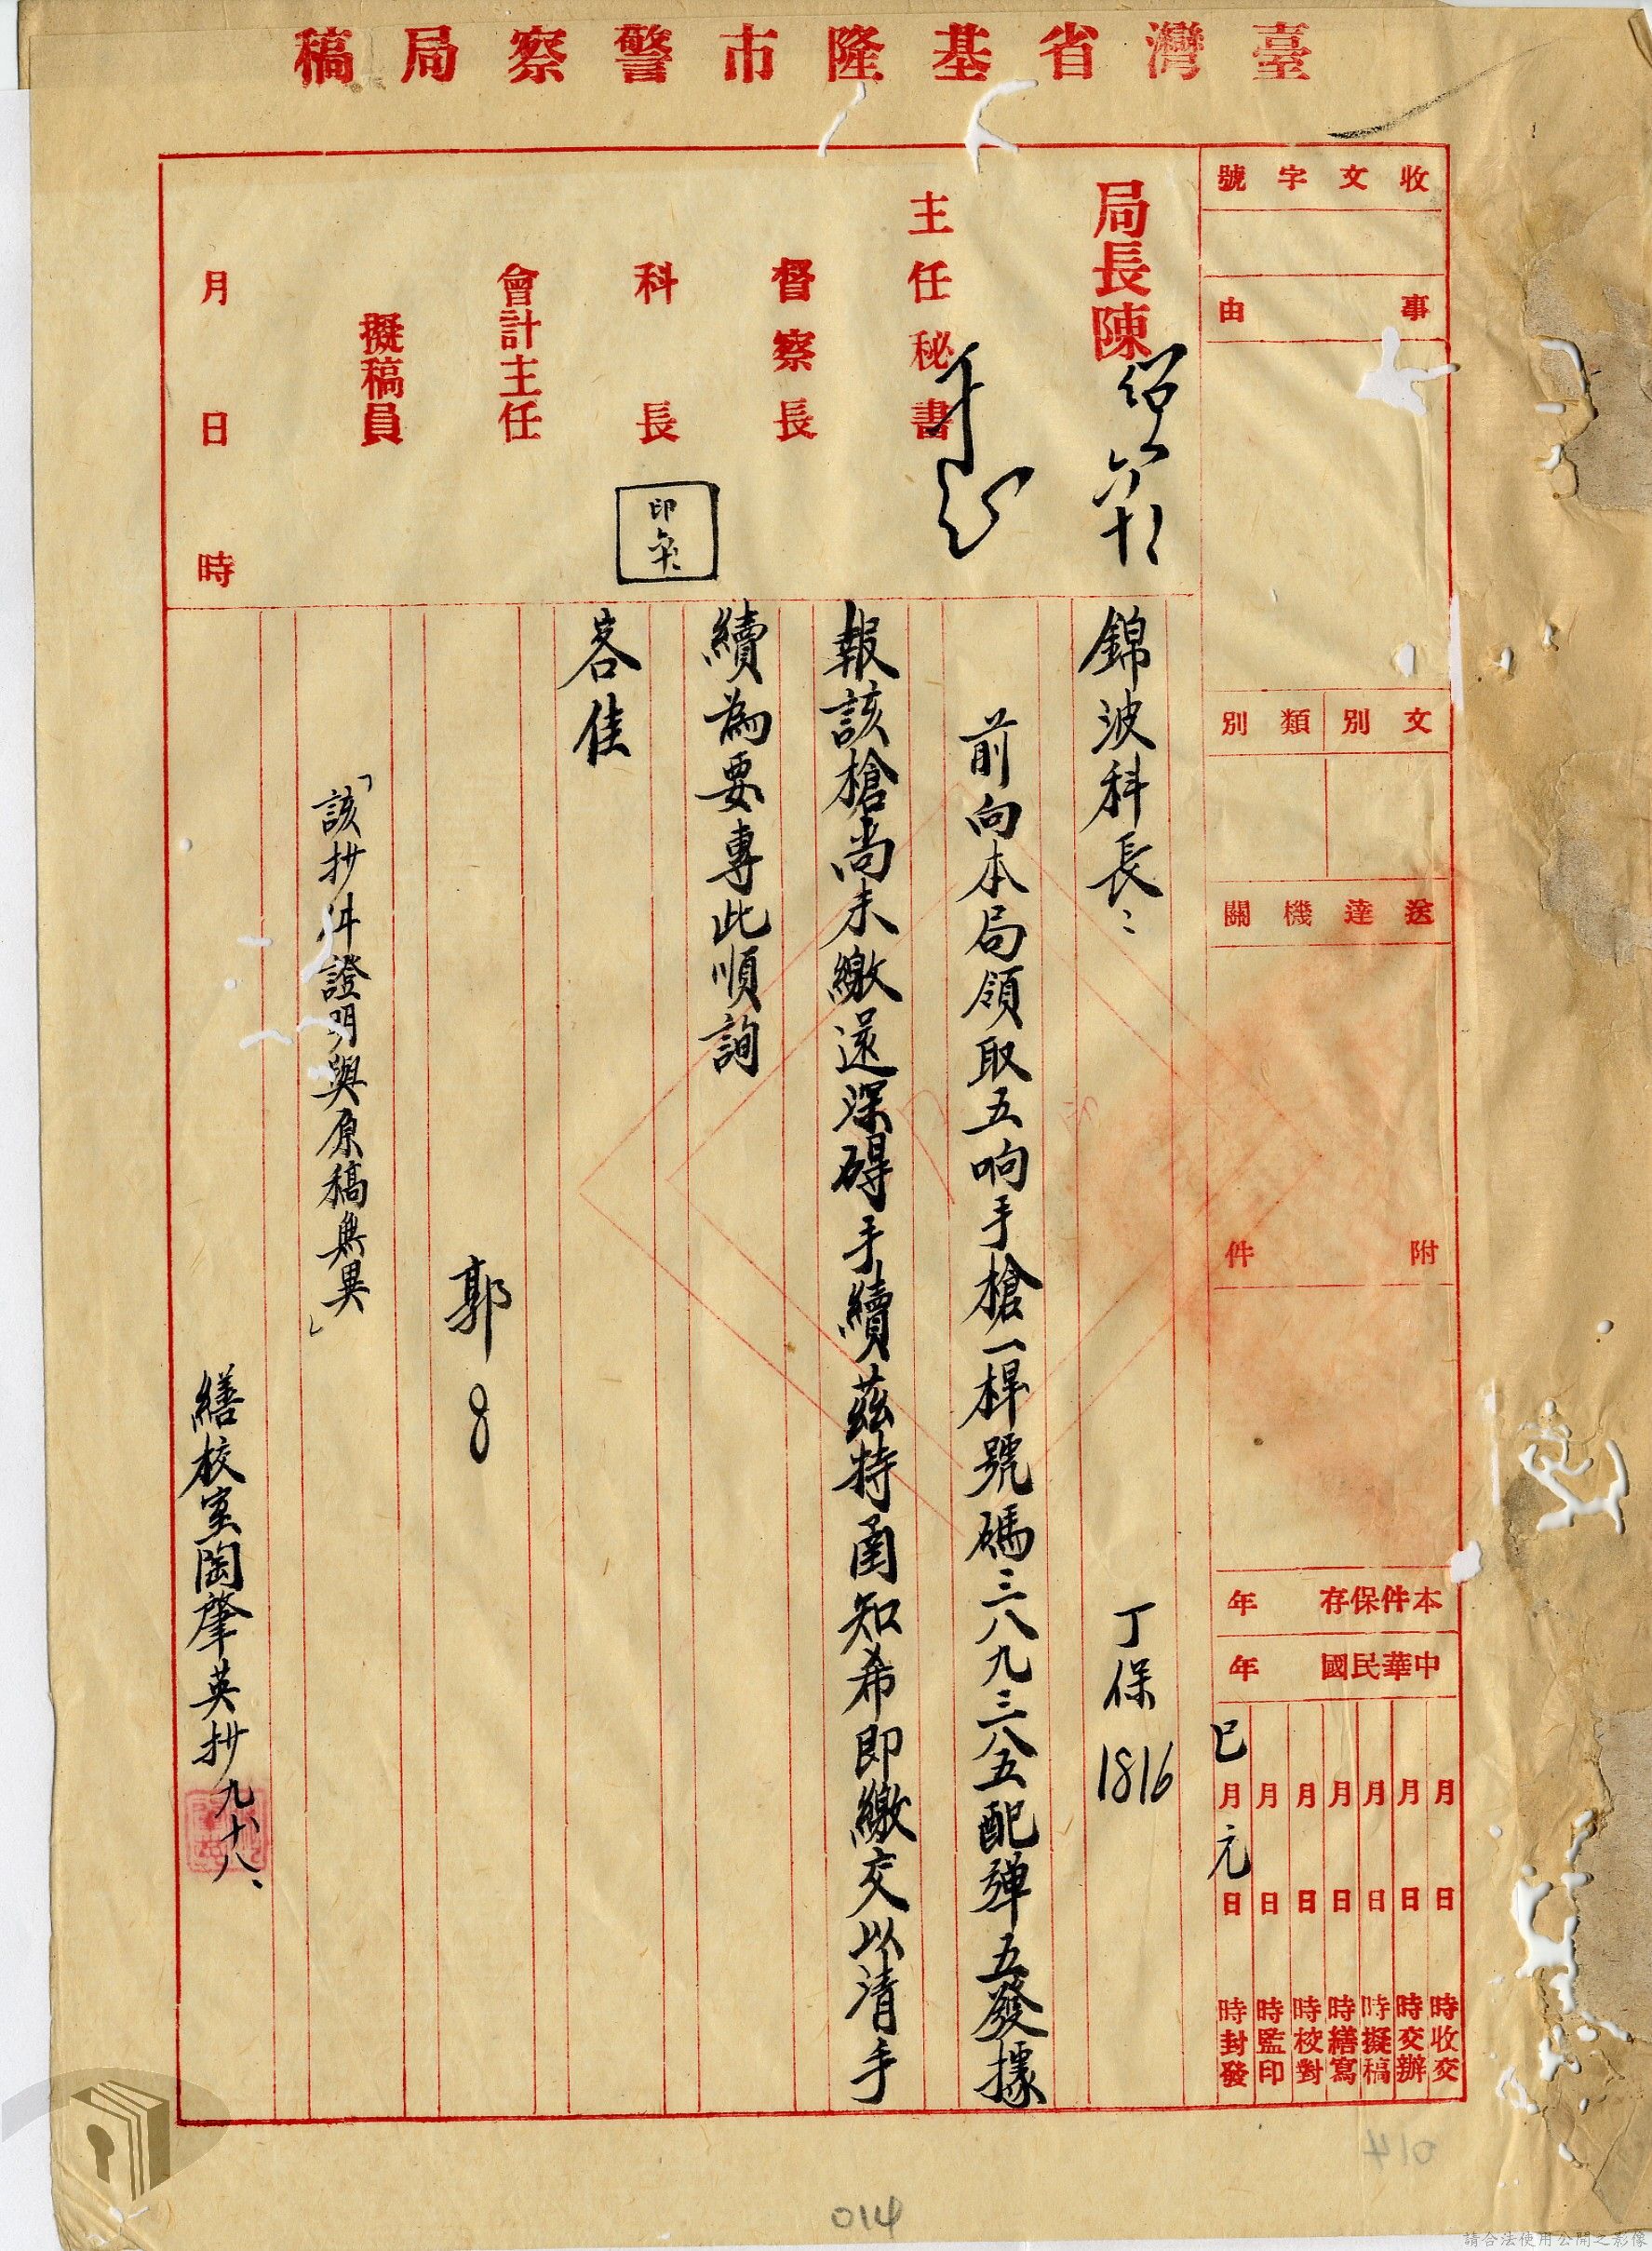 臺灣省基隆市警察局稿
收文字號
事由
文別
類別
送達機關
附件
本件保存 年
中華民國 年
月 日 時收文
月 日 時交辦
月 日 時擬稿
月 日 時繕寫
月 日 時校對
月 日 時監印
巳月元日 時封發
局長陳
主任秘書
督察長
科長
印
會計主任
擬稿員
月 日 時
錦波科長:
丁保1816
前向本局領取五响手槍一桿號碼三八九三八五配彈五發據
報該槍尚未繳還深碍手續茲特函知希即繳交以清手
續為要專此順詢
客佳
郭
「該抄件證明與原稿無異」
繕校室陶肇英抄九、十八、
014
014
請合法使用公開之影像